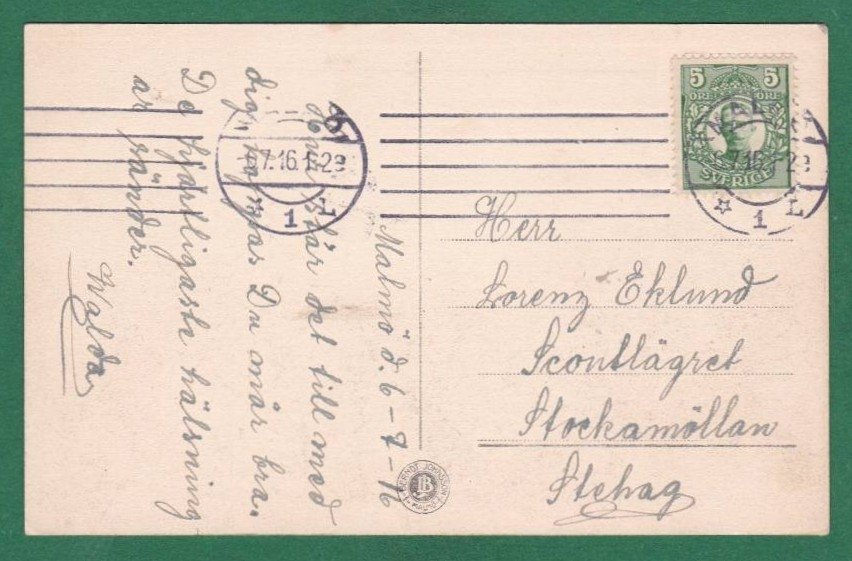 Malmö d. 6-7-16
Hur står det till med
dig, hoppas Du mår bra.
De hjärtligaste hälsning
ar sänder.
Walda
5 5
ÖRE ÖRE
SVERIGE
7.16.1-2
1 L
7.16.1-2
1 L
Herr
Lorenz Eklund
Scoutlägret
Stockamöllan
Stehag
BERNDT JOHNSSON
MALMÖ